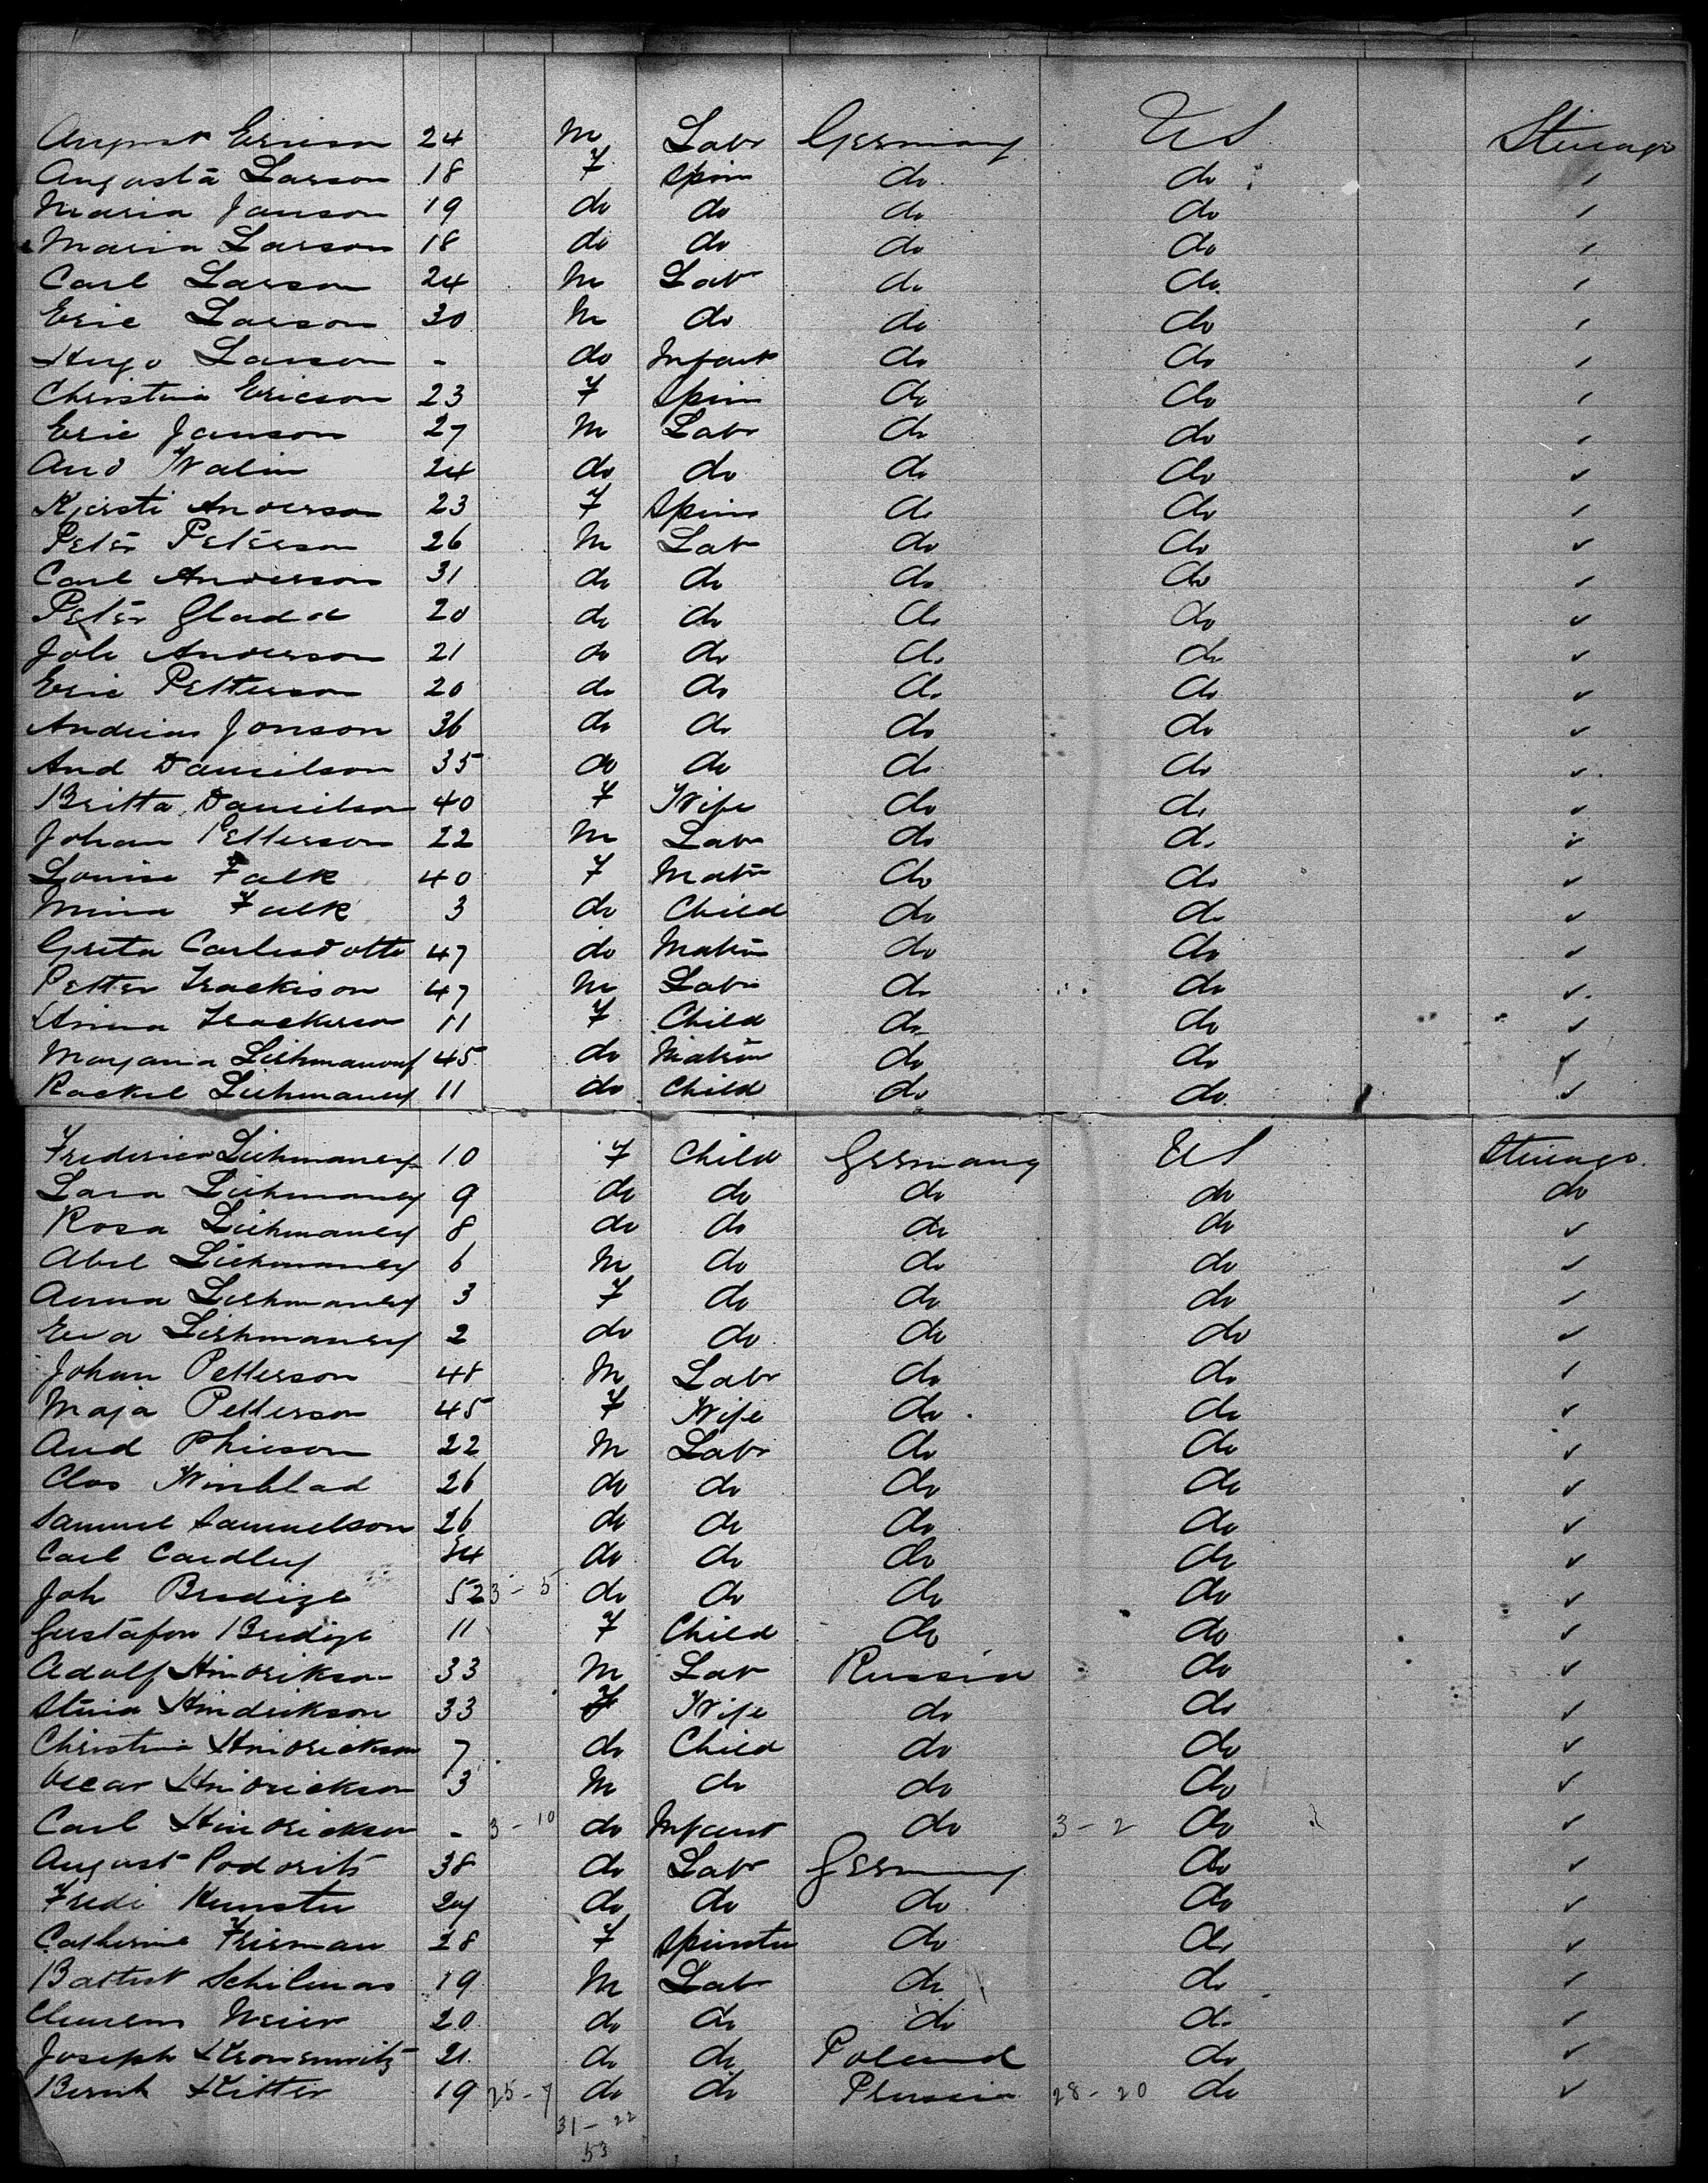 August Ericson 24 M Labr Germany US Steerage
Augusta Larson 18 F Spin do do "
Maria Janson 19 do do do do "
Maria Larson 18 do do do do "
Carl Larson 24 M Labr do do "
Eric Larson 30 M do do do "
Hugo Larson - do Infant do do "
Christina Ericson 23 F Spin do do "
Eric Janson 27 M Labr do do "
And Walin 24 do do do do "
Kjersti Anderson 23 F Spins do do "
Peter Peterson 26 M Labr do do "
Carl Anderson 31 do do do do "
Peter Glad 20 do do do do "
Joh Anderson 21 do do do do "
Eric Petterson 20 do do do do "
Andreas Jonson 36 do do do do "
And Danielson 35 do do do do "
Britta Danielson 40 F Wife do do "
Johan Petterson 22 M Labr do do "
Louise Falk 40 F Matn do do "
Mina Falk 3 do Child do do "
Greta Carlesdotte 47 do Matron do do "
Petter Isackison 47 M Labr do do "
Anna Isackson 11 F Child do do "
45 do Matron do do "
Rackel 11 do Child do do "
10 F Child Germany US Steerage
Sara 9 do do do do do
Rosa 8 do do do do "
Abel 6 M do do do "
Anna 3 F do do do "
Eva 2 do do do do "
Johan Petterson 48 M Labr do do "
Maja Petterson 45 F Wife do do "
And 22 M Labr do do "
Clas Winblad 26 do do do do "
Samuel Samuelson 26 do do do do "
Carl do do do do "
Joh 52 3-5 do do do do "
11 F Child do do "
Adolf Hindrikson 33 M Labr Russia do "
Stina Hindrikson 33 F Wife do do "
Christina Hindrickson 7 do Child do do "
Oscar Hindrickson 3 M do do do "
Carl Hindrickson - 3-10 do Infant do 3-2 do "
August 38 do Labr Germany do "
do do do do "
Catherine Frieman 28 F Spinster do do "
19 M Labr do do "
Clemens Meier 20 do do do do "
Joseph 21 do do Poland do "
19 25-7 do do Prussia 28-20 do "
31-22
53